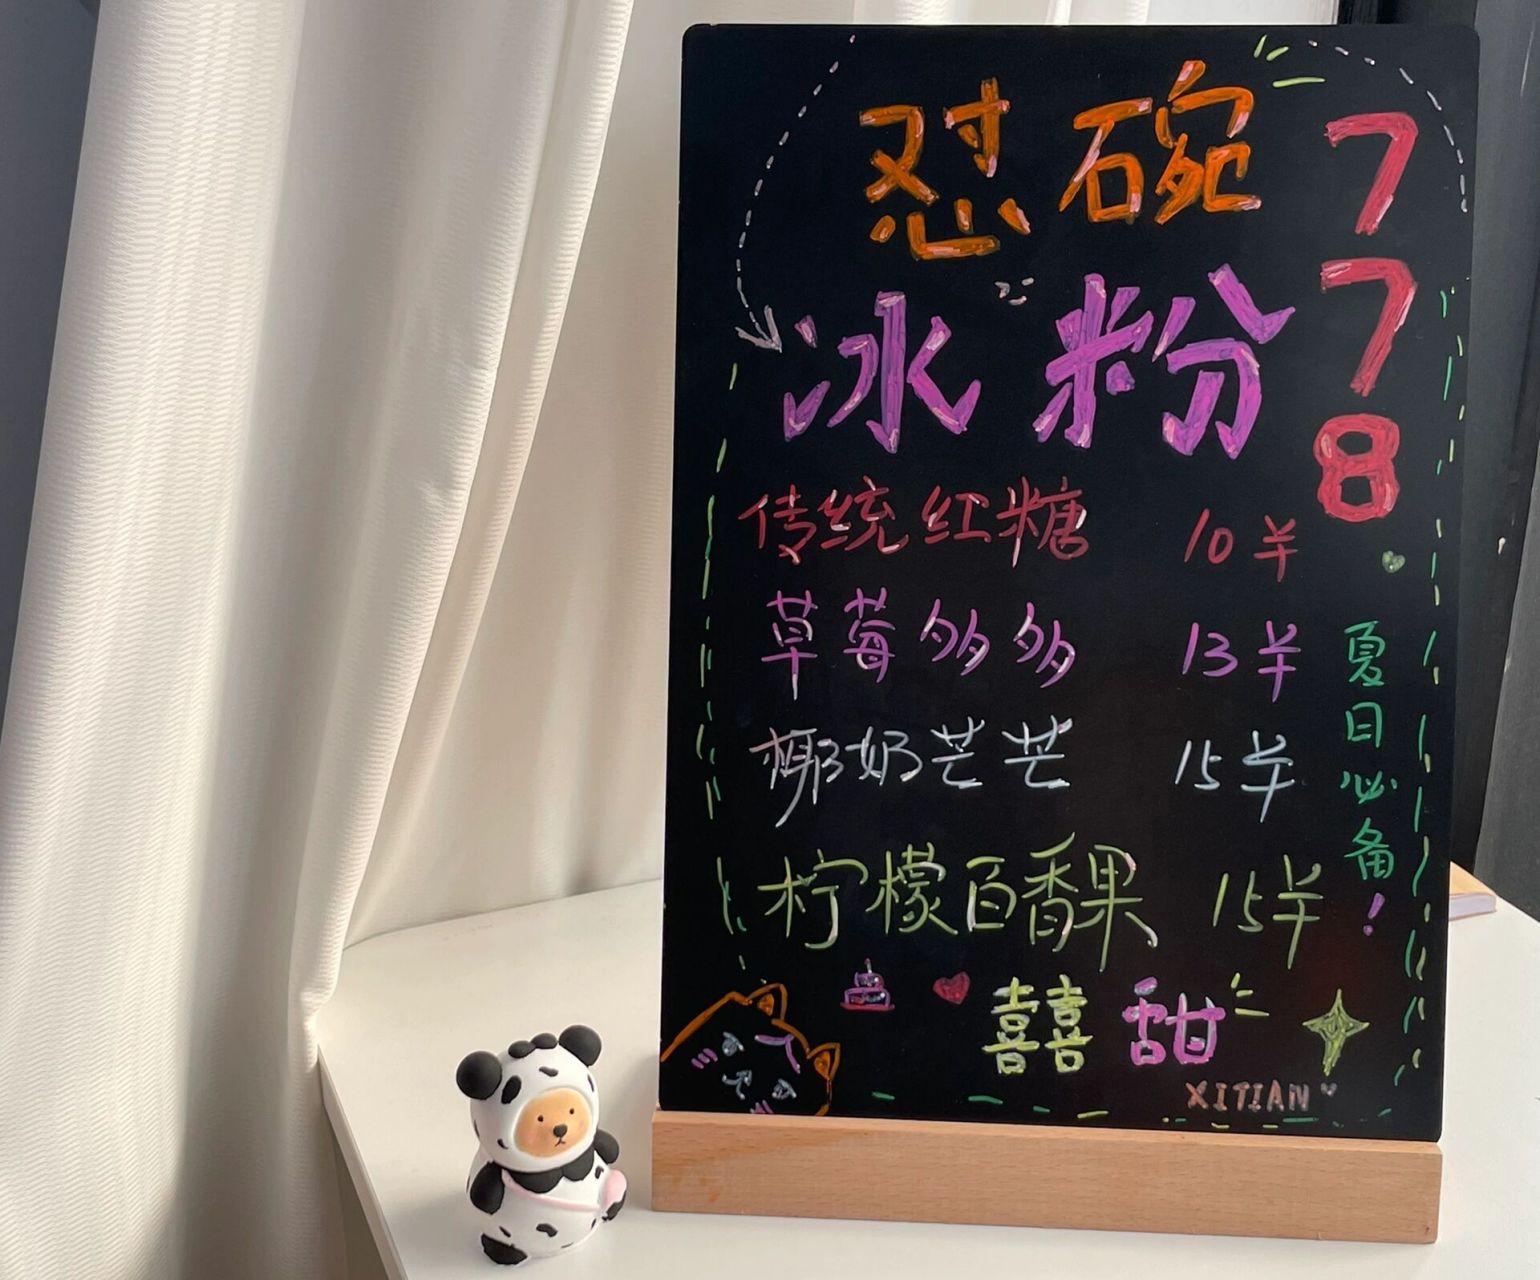 怼碗
冰粉
778
传统红糖 10半
草莓多多 13半
椰奶芒芒 15半
柠檬百香果 15半
夏日必备!
囍甜
XITIAN